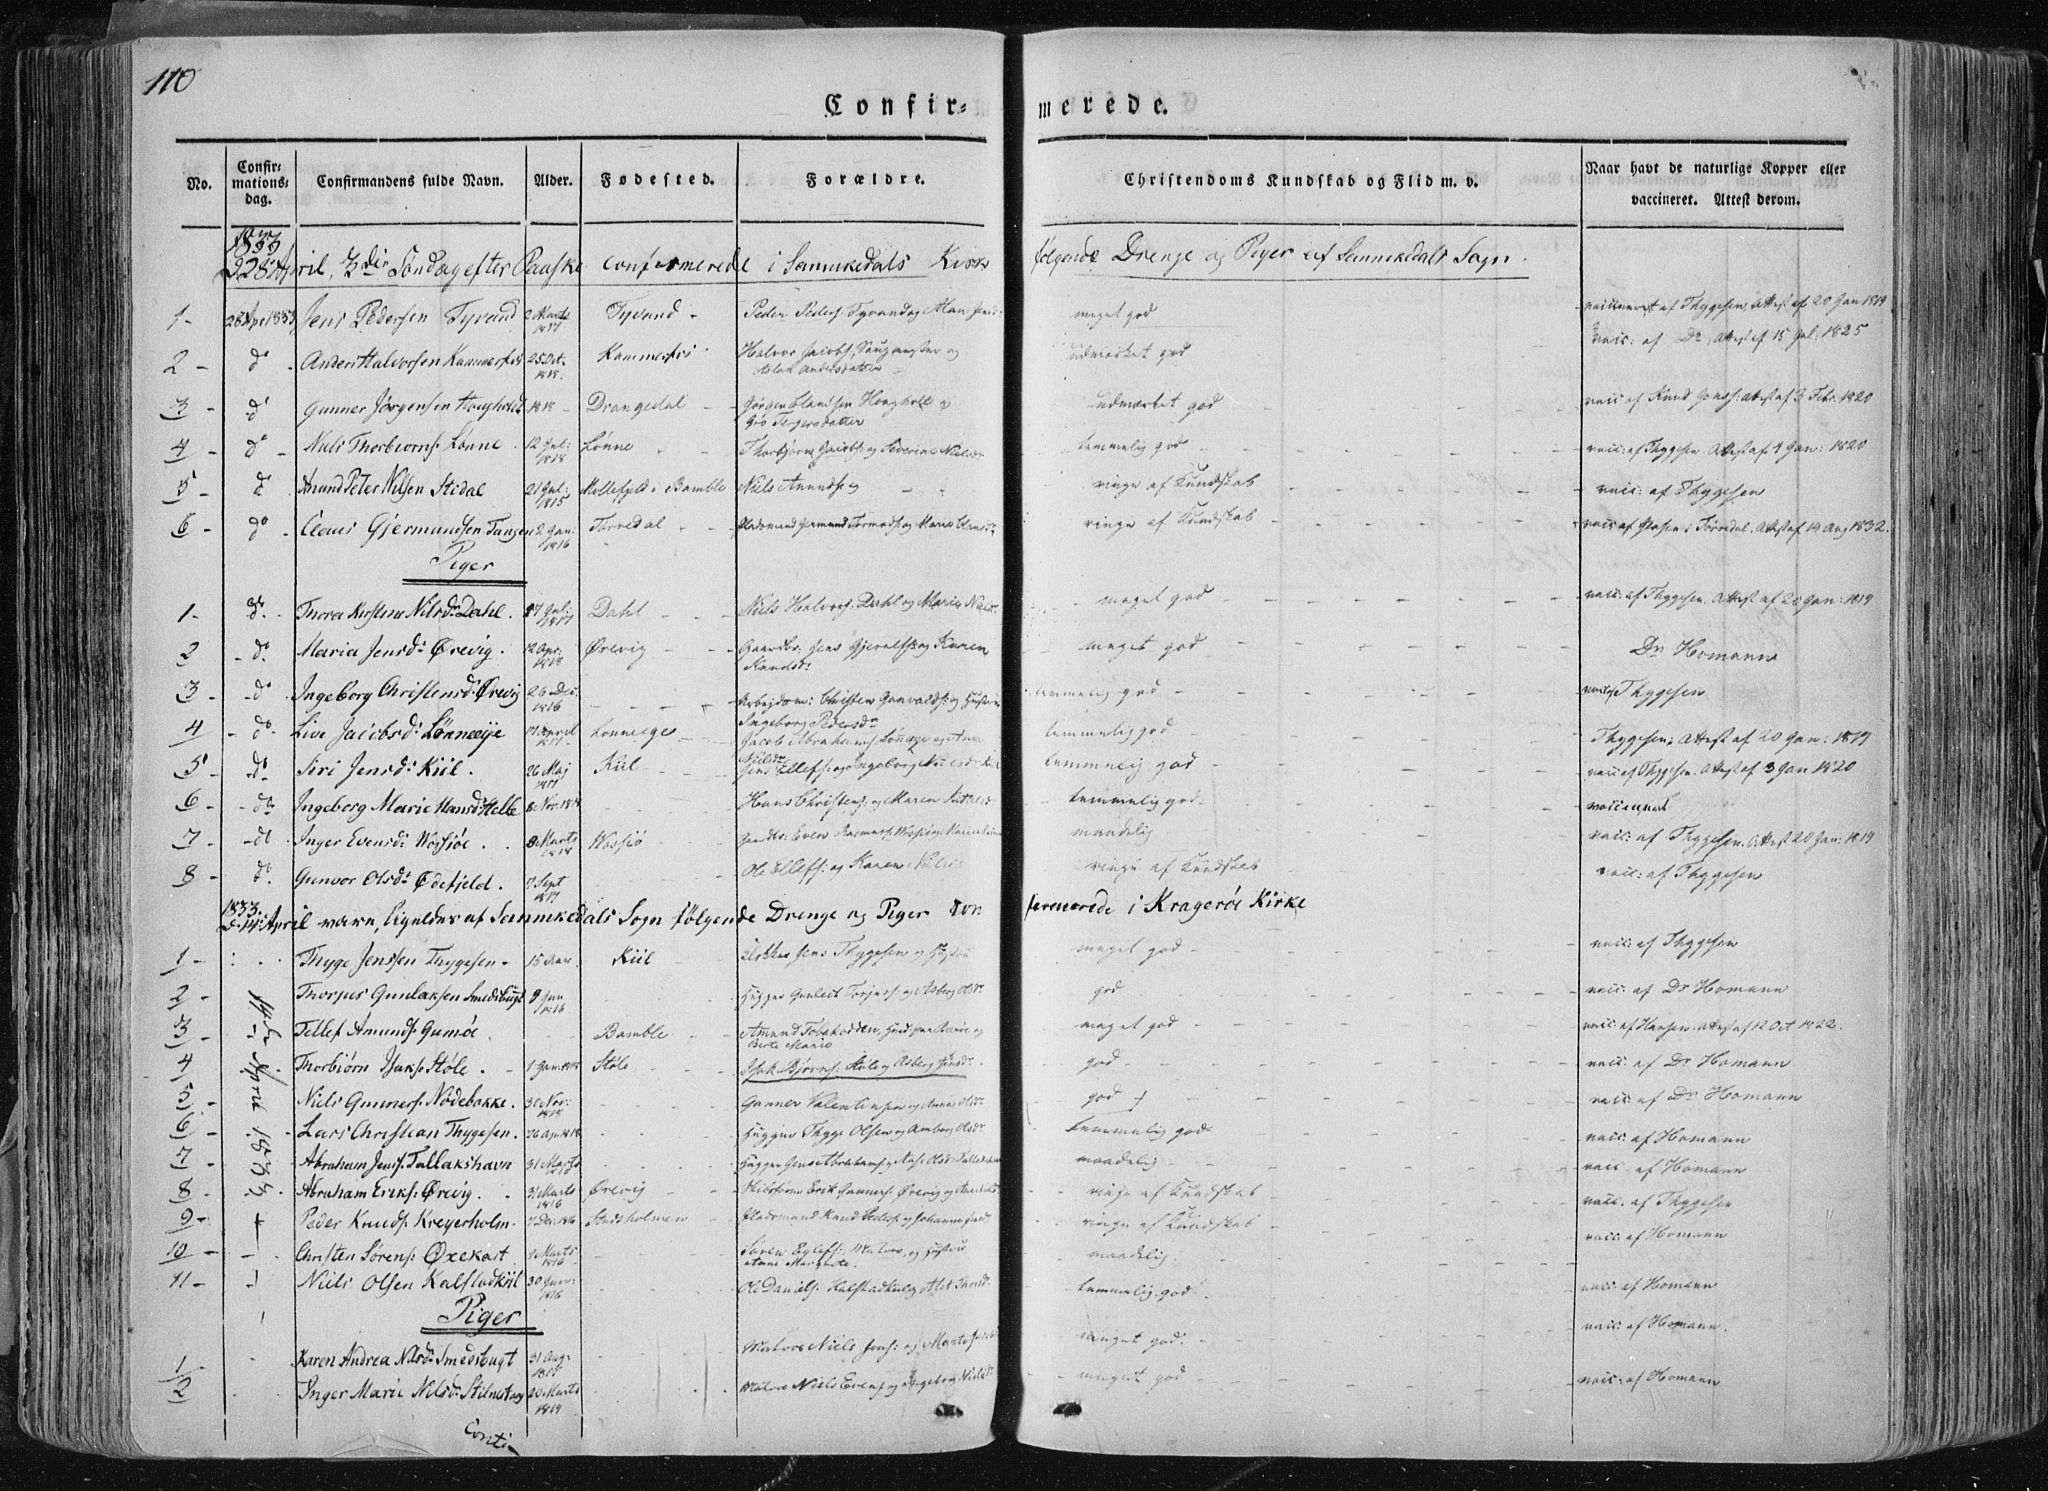 110
Confir-
merede.
No.
Confir-
mations-
dag.
Confirmandens fulde Navn.
Alder.
Fødested.
Forældre.
Christendoms Kundskab og Flid m. v.
Naar havt de naturlige Kopper eller
vaccineret. Attest derom.
1833
D 28 April, 3die Søndag efter Paaske confirmerede i Sannikedals Kirke følgende Drenge og Piger af Sannikedals Sogn.
1 - 28 Apr 1833 Jens Pedersen Tyvand 2 Marts 1817 Tyvand - Peder Peders: Tyvand og meget god vaccineret af Thygesen, Attest af 20 Jan 1819
2 - do Anders Halvorsen Kammerfos 25 Oct. 1818. Kammerfos Halvor Jacobs: og Aslau Andersdatter udmærket god vacc: af Do, Attest af 15 Jul: 1825
3 - do Gunner Jørgensen Houghold 1818 - Drangedal - Jørgen Clausen Hougholt og Gro Tergersdatter udmærket god vacc af Knud Jonss: Attest af 3 Febr: 1820
4 - do Niels Thorbiørns: Lønne 12 Jul: 1818 Lønne Thorbjørn Jacobs: og Severine Nielsdr temmelig god vacc: af Thygesen. Attest af 4 Jan: 1820
5 - do Anund Peter Nilsen Stidal 21 Jul: 1815 Mollefjeld i Bamble Niels Anunds: og ringe af Kundskab vacc: af Thygesen
6 - do Claus Gjermundsen Tangen 2 Jan: 1816 Torredal Pladsmand Germund Tormods: og Maria Clausdr ringe af Kundskab vacc af i Tørredal. Attest af 14 Aug 1832.
Piger
1 - do. Thora Kirstine Nilsdr Dahl. 17 Jul: 1817 Dahl Niels Halvors: Dahl og Maria Nielsdr meget god vacc: af Thygesen. Attest af 20 Jan: 1819
2 - do. Maria Jensdr Ørevig. 12 Apr: 1818 Ørevig Gaardbr: Jens Gjerulfs: og Karen Knudsdr meget god Dr Homann
3 - do Ingeborg Christensdr Ørevig 26 Dec. 1816 Arbejdsm: Christen Gunvalds: og Hustru Ingeborg Pedersdr temmelig god Thygesen
4 - do. Live Jacobsdr Lønneeje 17 April 1817 Lønneeje Jacob Abrahams: Lønneeje og Anne Nielsdr temmelig god Thygesen, Attest af 20 Jan: 1819
5 - do. Siri Jensdr Kiil. 26 Maj 1817 Kiil Jens Ellefs: og Ingeborg Nielsdr Kiil temmelig god vacc af Thygesen. Attest af 3 Jan 1820
6 - do Ingeborg Marie Hansdr Helle 8 Nov. 1818 Hans Christens: og Maren temmelig god. vaccineret
7 - do Inger Evensdr Vossiøe. 8 Marts 1818 Vossiø Even Rasmus: Vossiø og maadelig vacc: af Thygesen. Attest 20 Jan: 1819
8 - do. Gunvor Olsdr Ødefjeld. 7 Sept 1817 Ole Ellefs: og Karen Nielsdr ringe af Kundskab vacc: af Thygesen
1833
D. 14 April vare, ligeledes af Sannikedals Sogn følgende Drenge og Piger confirmerede i Kragerøe Kirke
14de April 1833
1 - Thyge Jenssen Thygesen - 15 Kiil Jens Thygesen og Hustru meget god vacc: af Thygesen
2 - Thorjus Gunlaksen Smedsbugt 9 Jan 1816 Hugger Gunleik Torjus: og Asberg Olsdr god vacc: af Dr Homann
3 - Tellef Amunds: Gumøe Bamble Amund og Berte Marie meget god vacc: af Hansen. Attest af 12 Oct. 1822.
4 - Thorbiørn Isaks: Støle. 1 Jan. 1818 Støle Isak Bjørns: Støle og Asberg Jensdr god vacc: af Dr Homann
5 - Niels Gunners: Nødebakke. 30 Nov: 1818 Gunner Valentinsen og Anne Olsdr god vacc: af Dr Homann
6 - Lars Christian Thygesen. 26 Apr 1818 Hugger Thyge Olsen og Amborg Olsdr temmelig god vacc: af Homann
7 - Abraham Jens: Tallakshavn 31 Marts Hugger Jens Abrahams: og maadelig vacc: af Homann
8 - Abraham Eriks: Ørevig. 31 Marts 1816 Ørevig Erik Gunners: Ørevig og ringe af Kundskab vacc. af Thygesen
9 - Peder Knuds: Kreyerholm. 7 Dec: 1816 Stadsholmen Pladsmand Knud Peders: og Johanne ringe af Kundskab vacc: af Homann
10 - Christen Sørens: Øxekast 1 Marts 1816 Søren Eylefs: Matros, og Hustru Anne Margrete. maadelig vacc: af Homann
11 - Niels Olsen Kalstadkiil 30 Janr: 1816 Ole Daniels: Kalstadkiil og temmelig god. vacc: af Homann.
Piger
1 - Karen Andrea Nilsdr Smedsbugt 31 Aug: 1817 Matros Niels Jens: og meget god. vacc: af Homann
2 Inger Marie Nilsdr Stilnestang 20 Marts 1819 Matros Niels Evens: og Ingeborg Nielsdr meget god
Conti